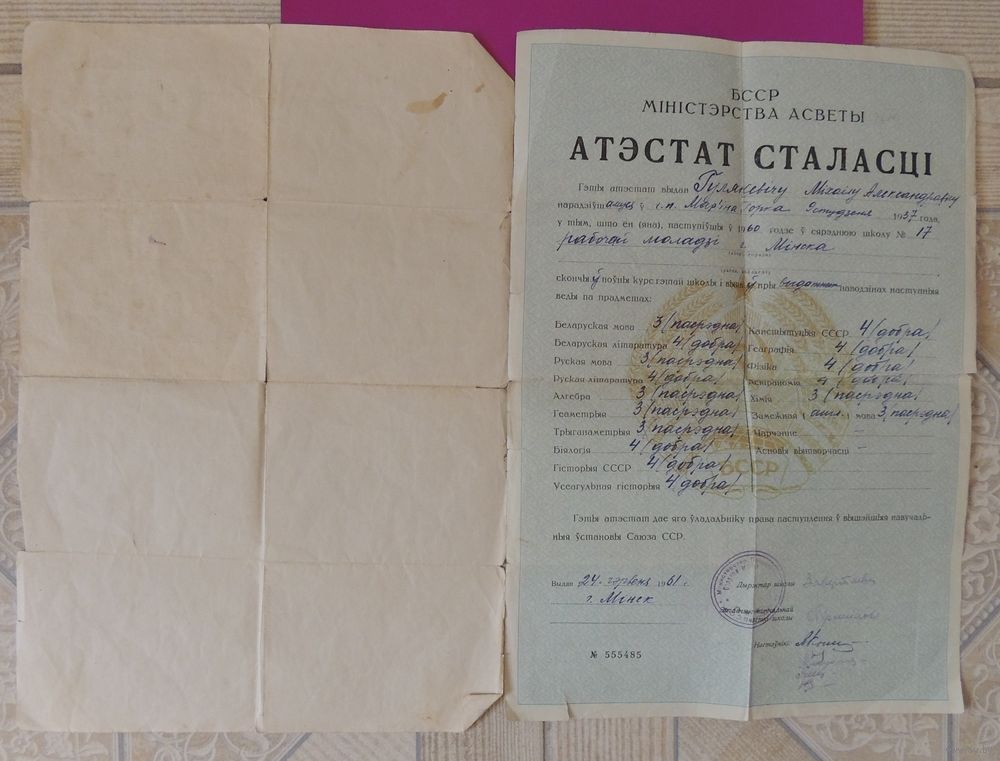 БССР
МІНІСТЭРСТВА АСВЕТЫ
АТЭСТАТ СТАЛАСЦІ
Гэты атэстат выдан Гулякевічу Міхаілу Александравічу
нарадзіўшамуся ў г.п. Мар'іна Горка 1937 года,
у тым, што ён (яна), паступіўшы ў 1960 годзе ў сярэднюю школу № 17
рабочай моладзі г. Мінска
скончыў поўны курс гэтай школы і выявіў пры выдатных паводзінах наступныя
веды па прадметах:
Беларуская мова 3 (пасрэдна) Канстытуцыя СССР 4 (добра)
Беларуская літаратура 4 (добра) Геаграфія 4 (добра)
Руская мова 3 (пасрэдна) Фізіка 4 (добра)
Руская літаратура 4 (добра) Астраномія 4 (добра)
Алгебра 3 (пасрэдна) Хімія 3 (пасрэдна)
Геаметрыя 3 (пасрэдна) Замежная (англ.) мова 3 (пасрэдна)
Трыганаметрыя 3 (пасрэдна) Чарчэнне –
Біялогія 4 (добра) Асновы вытворчасці –
Гісторыя СССР 4 (добра)
Усеагульная гісторыя 4 (добра)
БССР
Гэты атэстат дае яго ўладальніку права паступлення ў вышэйшыя навучаль-
ныя ўстановы Саюза ССР.
Выдан 24 чэрвеня 1961 г.
г. Мінск
Дырэктар школы
часткі школы
Настаўнікі
№ 555485